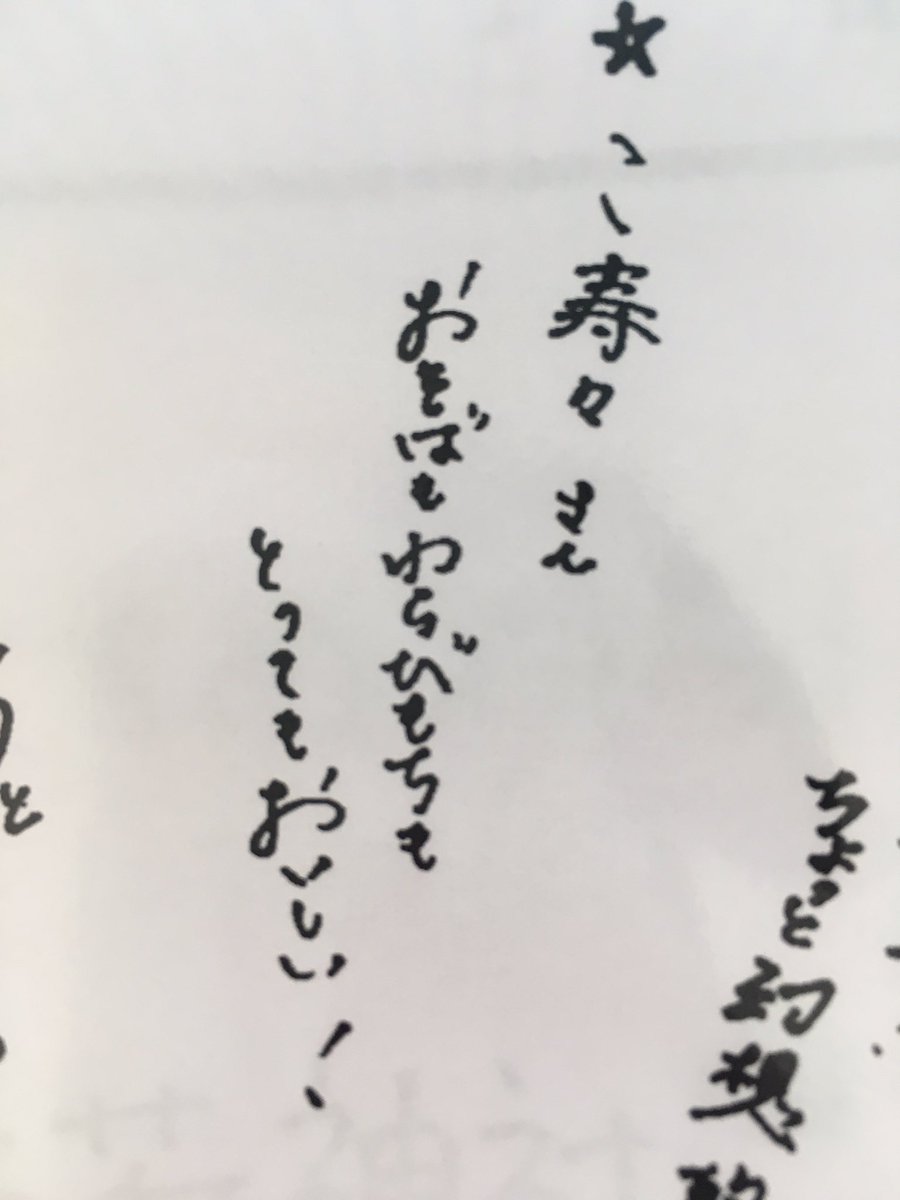 ちょっと幻想
★こ寿々さん
おそばもわらびもちも
とってもおいしい!